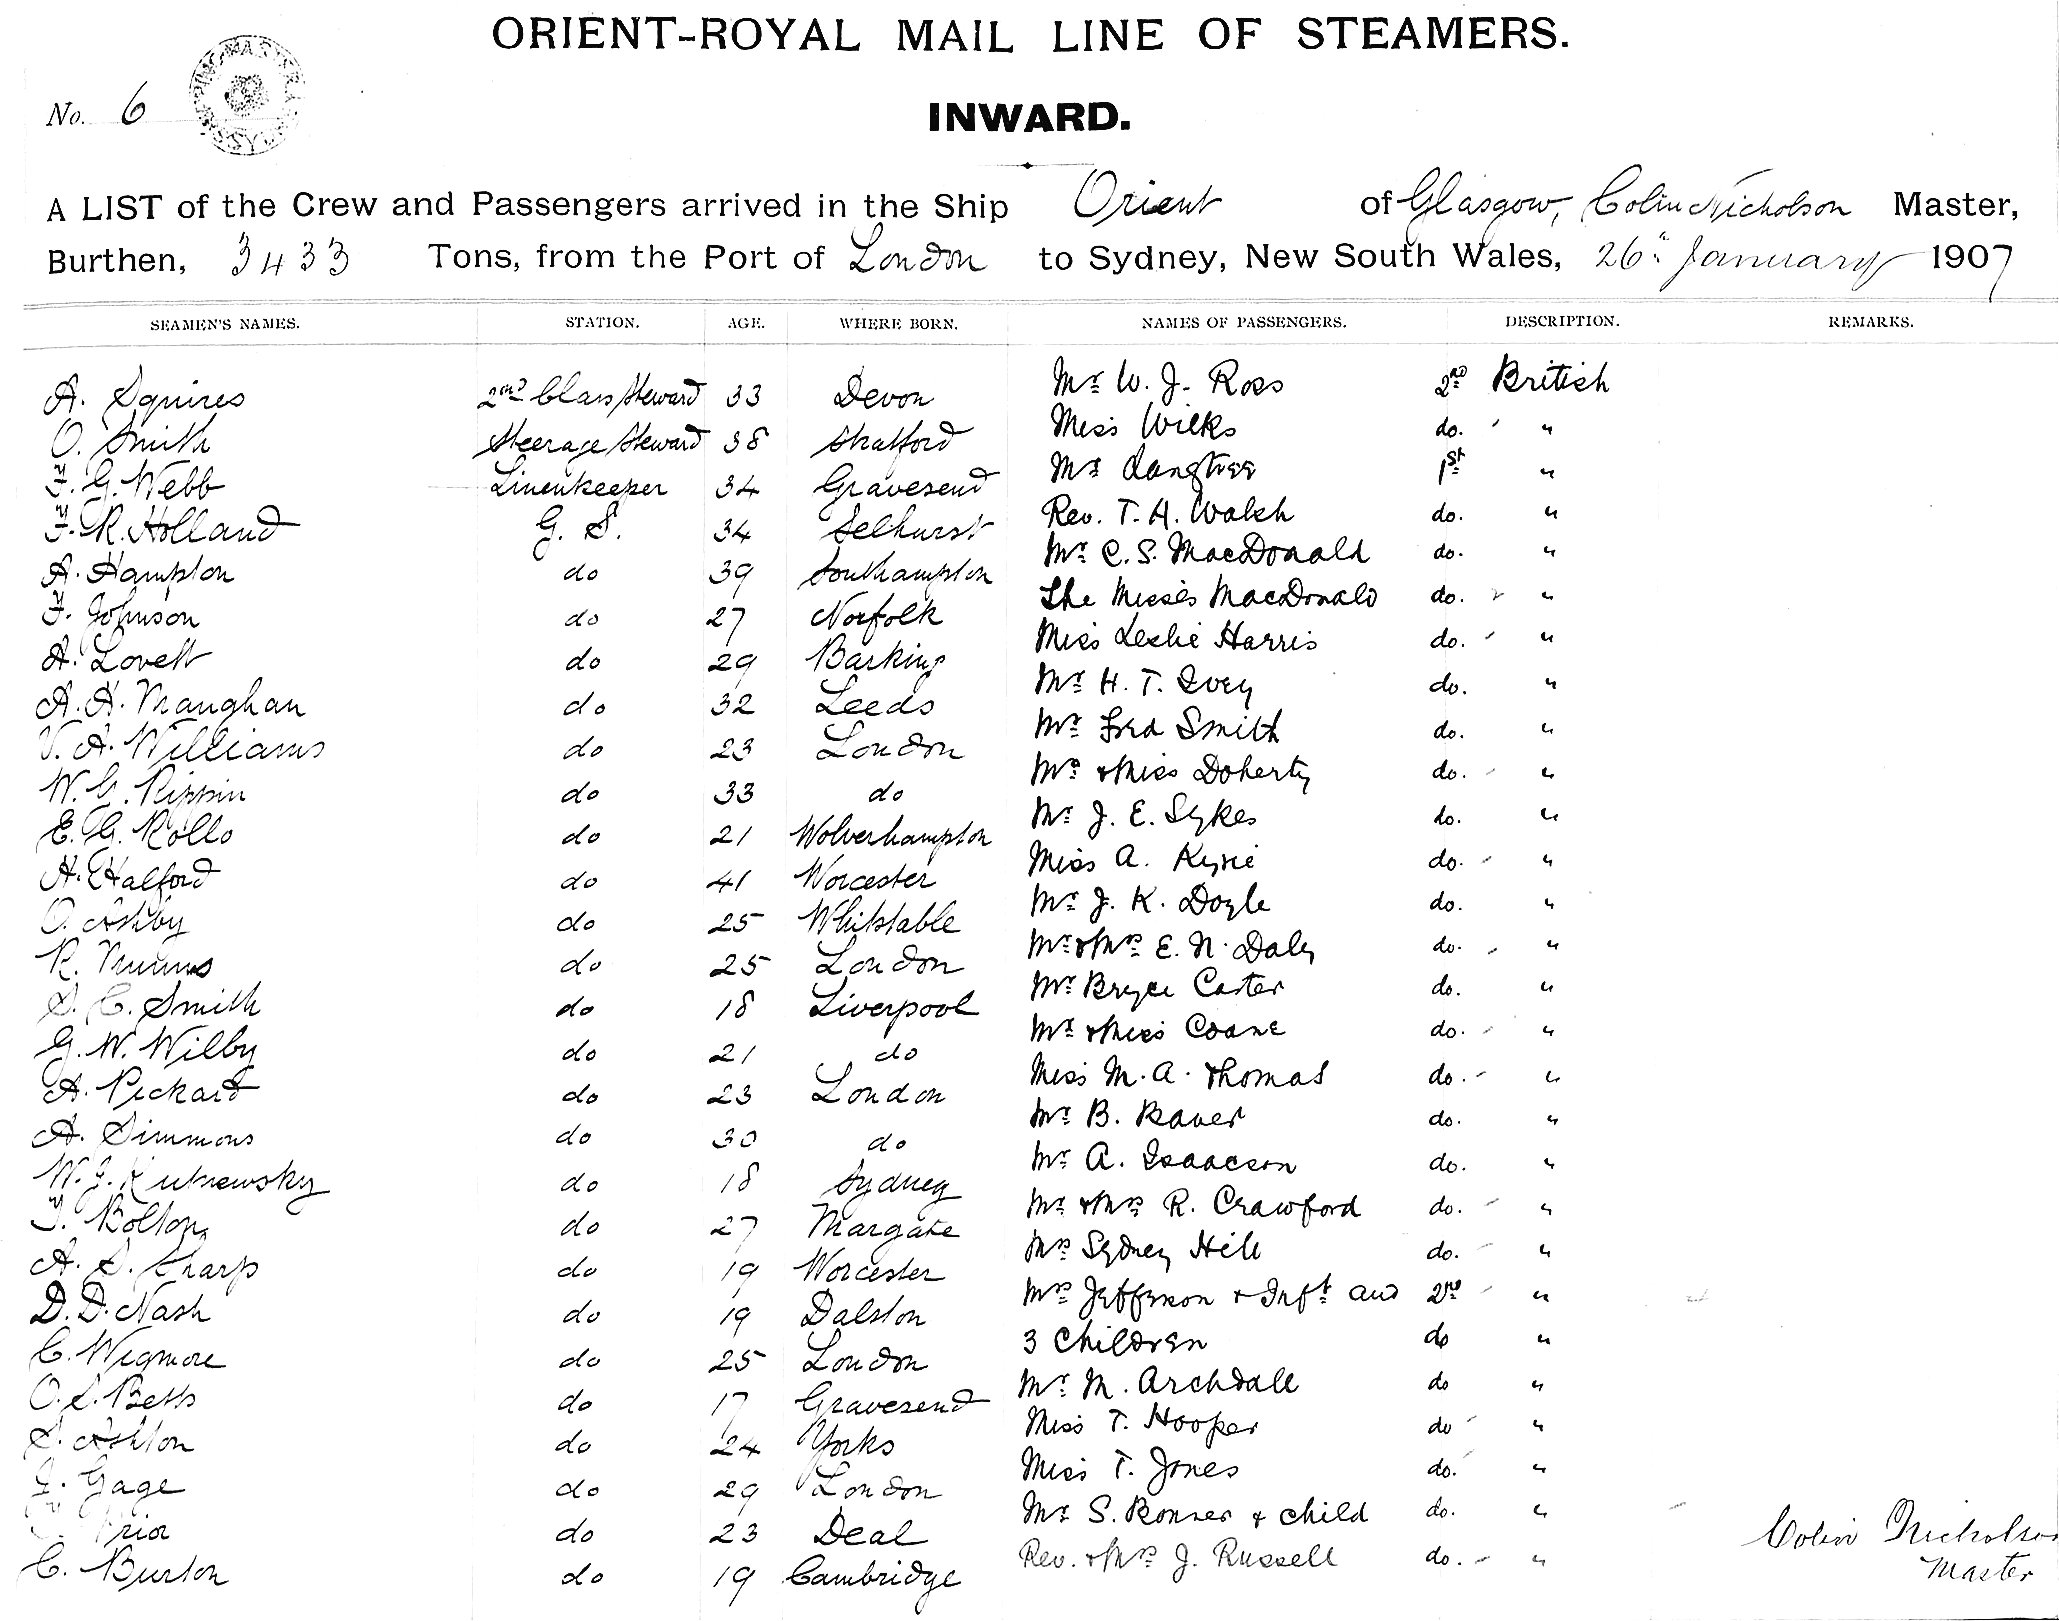 ORIENT-ROYAL MAIL LINE OF STEAMERS.
No. 6
INWARD.
A LIST of the Crew and Passengers arrived in the Ship Orient of Glasgow, Colin Nicholson Master,
Burthen, 3433 Tons, from the Port of London to Sydney, New South Wales, 26th January 1907
SEAMEN'S NAMES. STATION. AGE. WHERE BORN. NAMES OF PASSENGERS. DESCRIPTION. REMARKS.
A. Squires 2nd Class Steward 33 Devon Mr W. J. Ross 2nd British
O. Smith Steerage Steward 38 Stratford Miss Wilks do. "
F. G. Webb Linenkeeper 34 Gravesend Mr Langtree 1st "
F. R. Holland G. S. 34 Selhurst Rev. T. A. Walsh do. "
A. Hampton do 39 Southampton Mr C. S. MacDonald do. "
F. Johnson do 27 Norfolk The Misses MacDonald do. "
A. Lovett do 29 Barking Miss Leslie Harris do. "
A. A. Maughan do 32 Leeds Mr H. T. Ivey do. "
A. Williams do 23 London Mr Fred Smith do. "
W. G. Rippin do 33 do Mrs & Miss Doherty do. "
E. G. Rollo do 21 Wolverhampton Mr J. E. Sykes do. "
H. Halford do 41 Worcester Miss A. Kyrie do. "
O. Ashby do 25 Whitstable Mr J. K. Doyle do. "
R. Munns do 25 London Mr & Mrs E. N. Daly do. "
S. C. Smith do 18 Liverpool Mr Bryce Carter do. "
G. W. Wilby do 21 do Mr & Miss Coane do. "
A. Pickard do 23 London Miss M. A. Thomas do. "
A. Simmons do 30 do Mr B. Bauer do. "
W. J. do 18 Sydney Mr A. Isaacson do. "
F. Bolton do 27 Margate Mr & Mrs R. Crawford do. "
A. S. Sharp do 19 Worcester Mrs Sydney Hill do. "
D. D. Nash do 19 Dalston Mrs Jefferson & Inft and 2nd "
C. Wigmore do 25 London 3 Children do "
O. S. Betts do 17 Gravesend Mr M. Archdall do "
S. Ashton do 24 Yorks Miss T. Hooper do "
F. Gage do 29 London Miss T. Jones do. "
Prior do 23 Deal Mr S. Bonner & child do. "
C. Burton do 19 Cambridge Rev. & Mrs J. Russell do. "
Colin Nicholson
Master